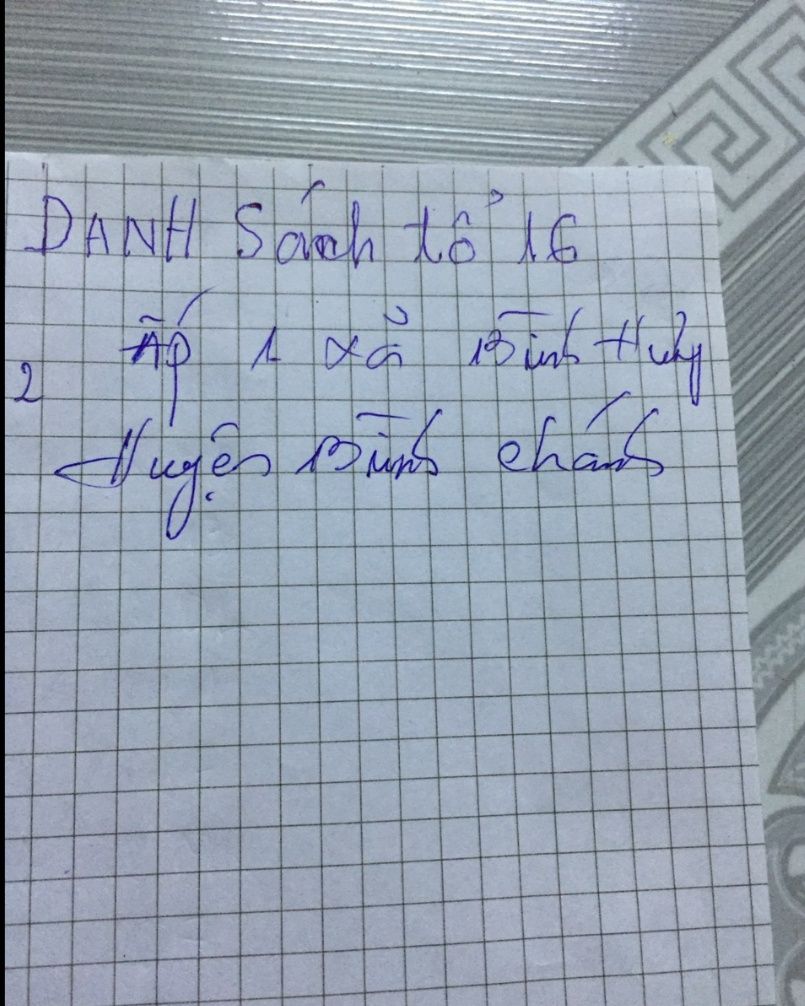 DANH Sách tổ 16
Ấp 1 xã Bình Hưng
2
Huyện Bình chánh